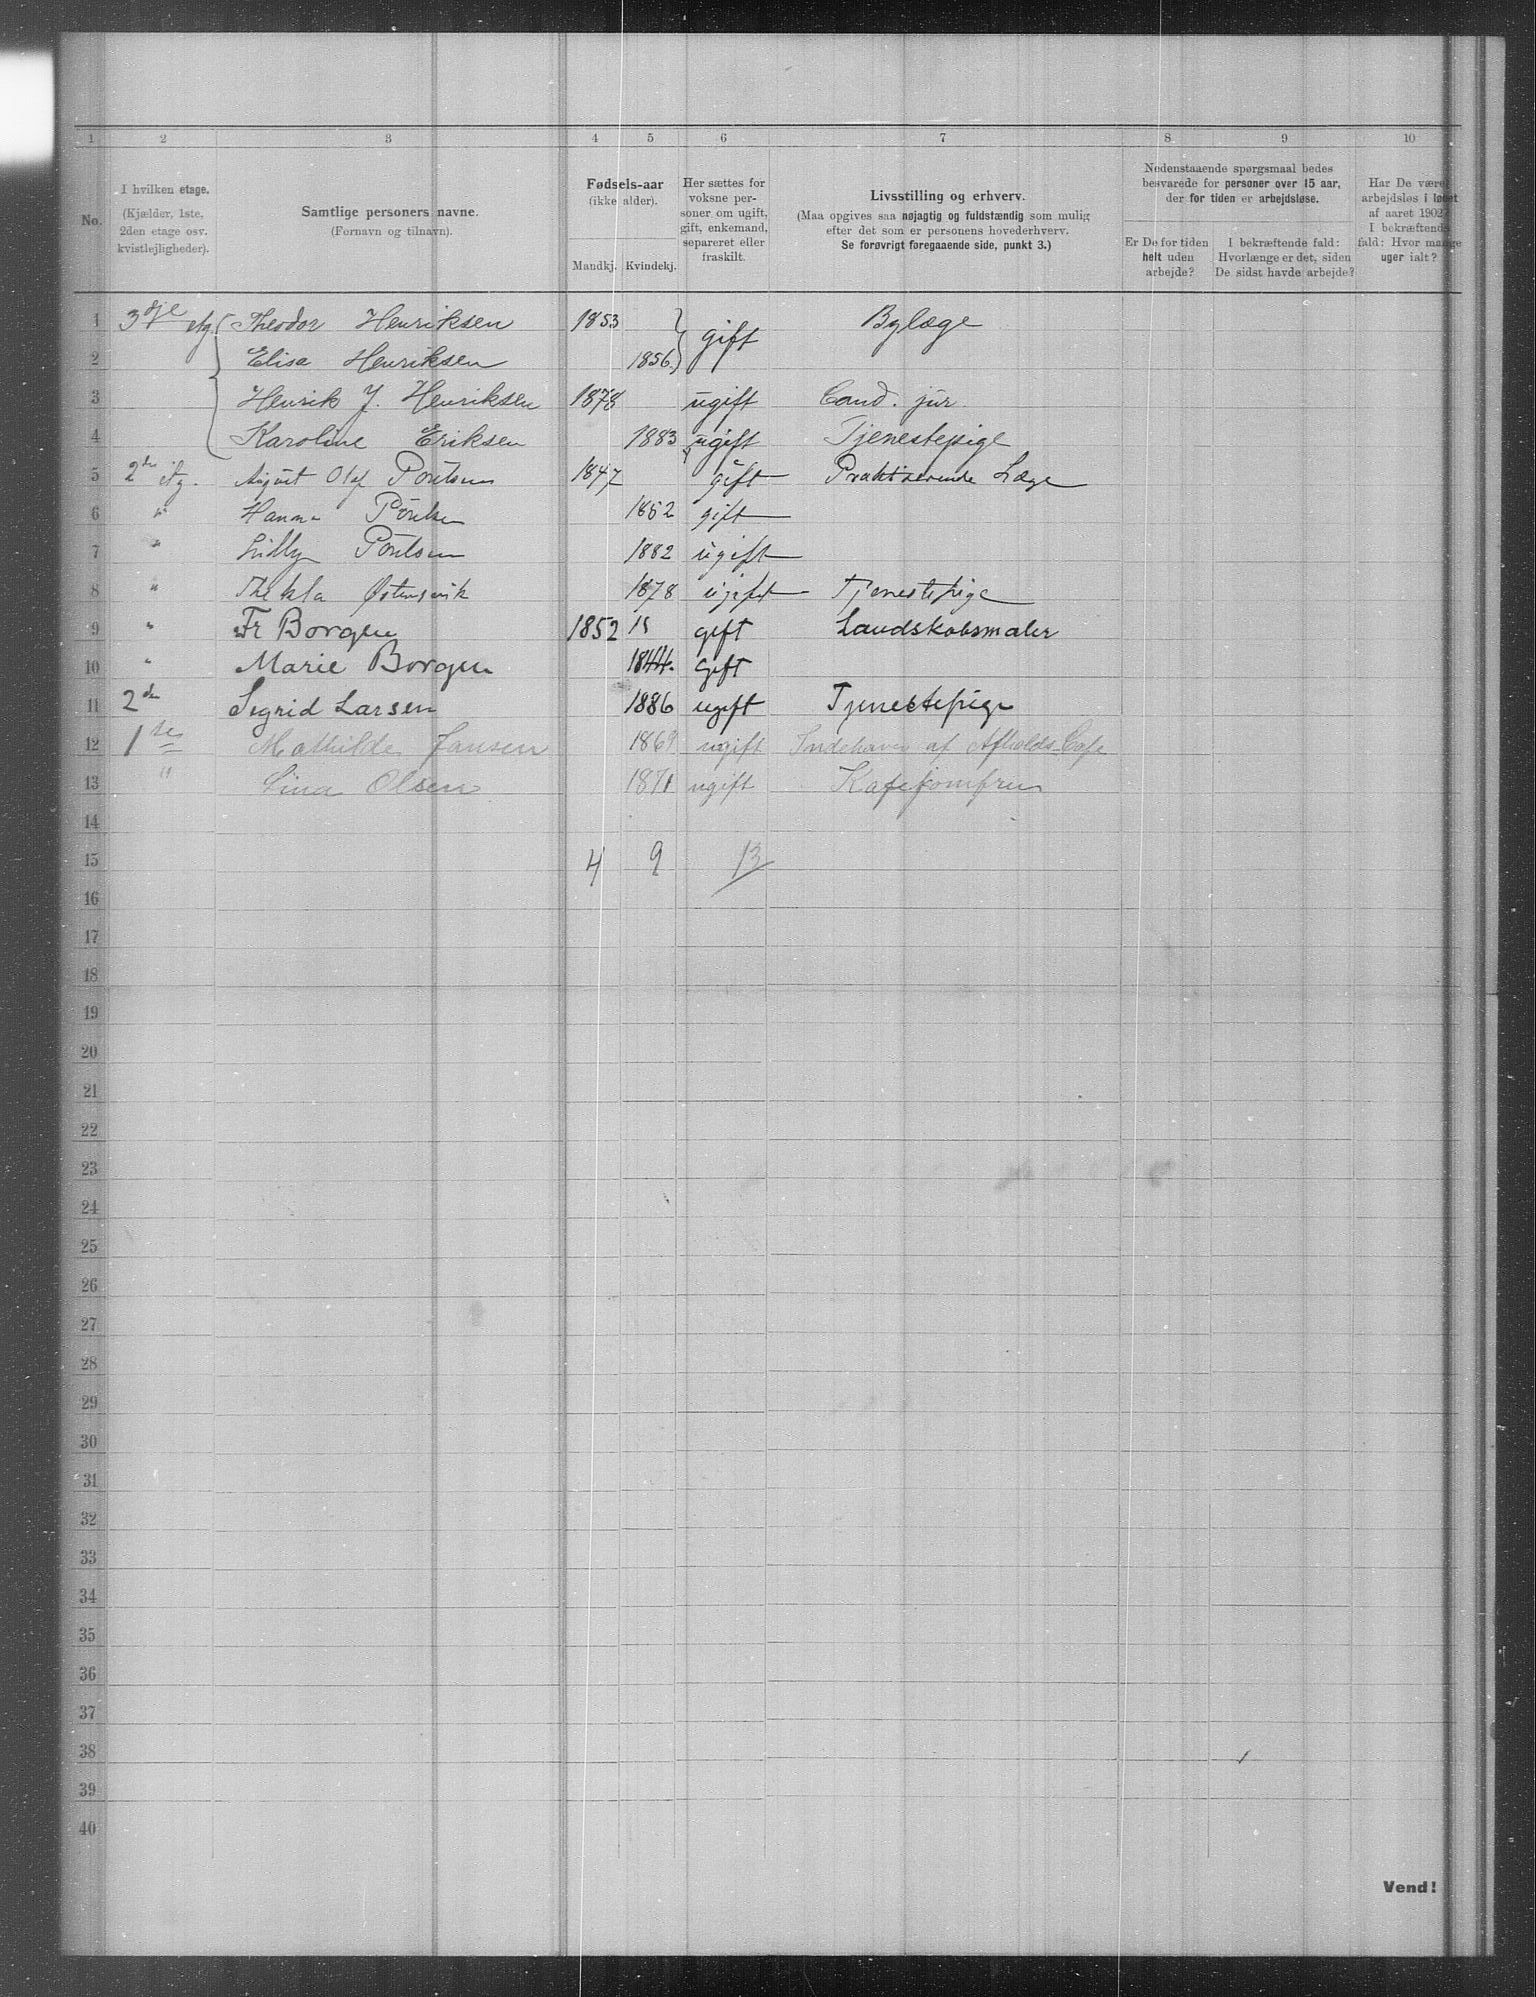 1 2 3 4 5 6 7 8 9 10
No.
I hvilken etage.
(Kjælder, 1ste,
2den etage osv.
kvistlejligheder).
Samtlige personers navne.
(Fornavn og tilnavn).
Fødsels-aar
(ikke alder).
Mandkj. Kvindekj.
Her sættes for
voksne per-
soner om ugift,
gift, enkemand,
separeret eller
fraskilt.
Livsstilling og erhverv.
(Maa opgives saa nøjagtig og fuldstændig som mulig
efter det som er personens hovederhverv.
Se forøvrigt foregaaende side, punkt 3.)
Nedenstaaende spørgsmaal bedes
besvarede for personer over 15 aar,
der for tiden er arbejdsløse.
Er De for tiden
helt uden
arbejde?
I bekræftende fald:
Hvorlænge er det, siden
De sidst havde arbejde?
Har De været
arbejdsløs i løbet
af aaret 1902?
I bekræftende
fald: Hvor mange
uger ialt?
1 3dje etg. Theodor Henriksen 1853 gift Bylæge
2 Elisa Henriksen 1856
3 Henrik J. Henriksen 1878 ugift Cand. jur.
4 Karoline Eriksen 1883 ugift Tjenestepige
5 2den etg. August Olaf Poulsen 1847 gift Praktiserende Læge
6 " Hanna Poulsen 1852 gift
7 " Lilly Poulsen 1882 ugift
8 " Thekla Østensvik 1878 ugift Tjenestepige
9 " Fr Borgen 1852 gift Landskabsmaler
10 " Marie Borgen 1844. gift
11 2den Sigrid Larsen 1886 ugift Tjenestepige
12 1ste Mathilde Jansen 1869 ugift Indehaver af Afholds Cafe
13 " Lina Olsen 1871 ugift Kafejomfru
14
15 4 9 13
16
17
18
19
20
21
22
23
24
25
26
27
28
29
30
31
32
33
34
35
36
37
38
39
40
Vend!